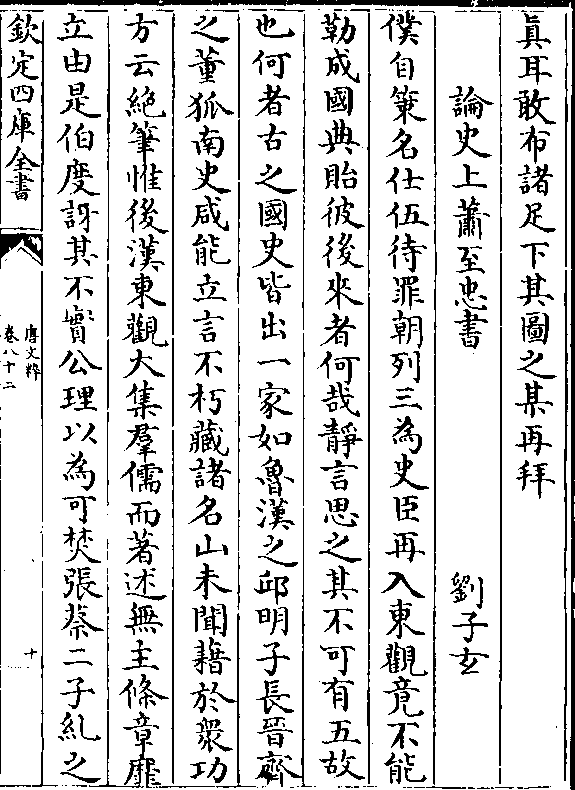 眞耳敢布諸足下其圖之某再拜
論史上蕭至忠書　劉子玄
僕自䇿名仕伍待罪朝列三為史臣再入東觀竟不能
勒成國典貽彼後來者何哉靜言思之其不可有五故
也何者古之國史皆出一家如魯漢之邱明子長晉齊
之董狐南史咸能立言不朽藏諸名山未聞藉於衆功
方云絶筆惟後漢東觀大集羣儒而著述無主條章靡
立由是伯度訝其不實公理以為可焚張蔡二子糺之
欽定四庫全書
唐文粹
卷八十二
十